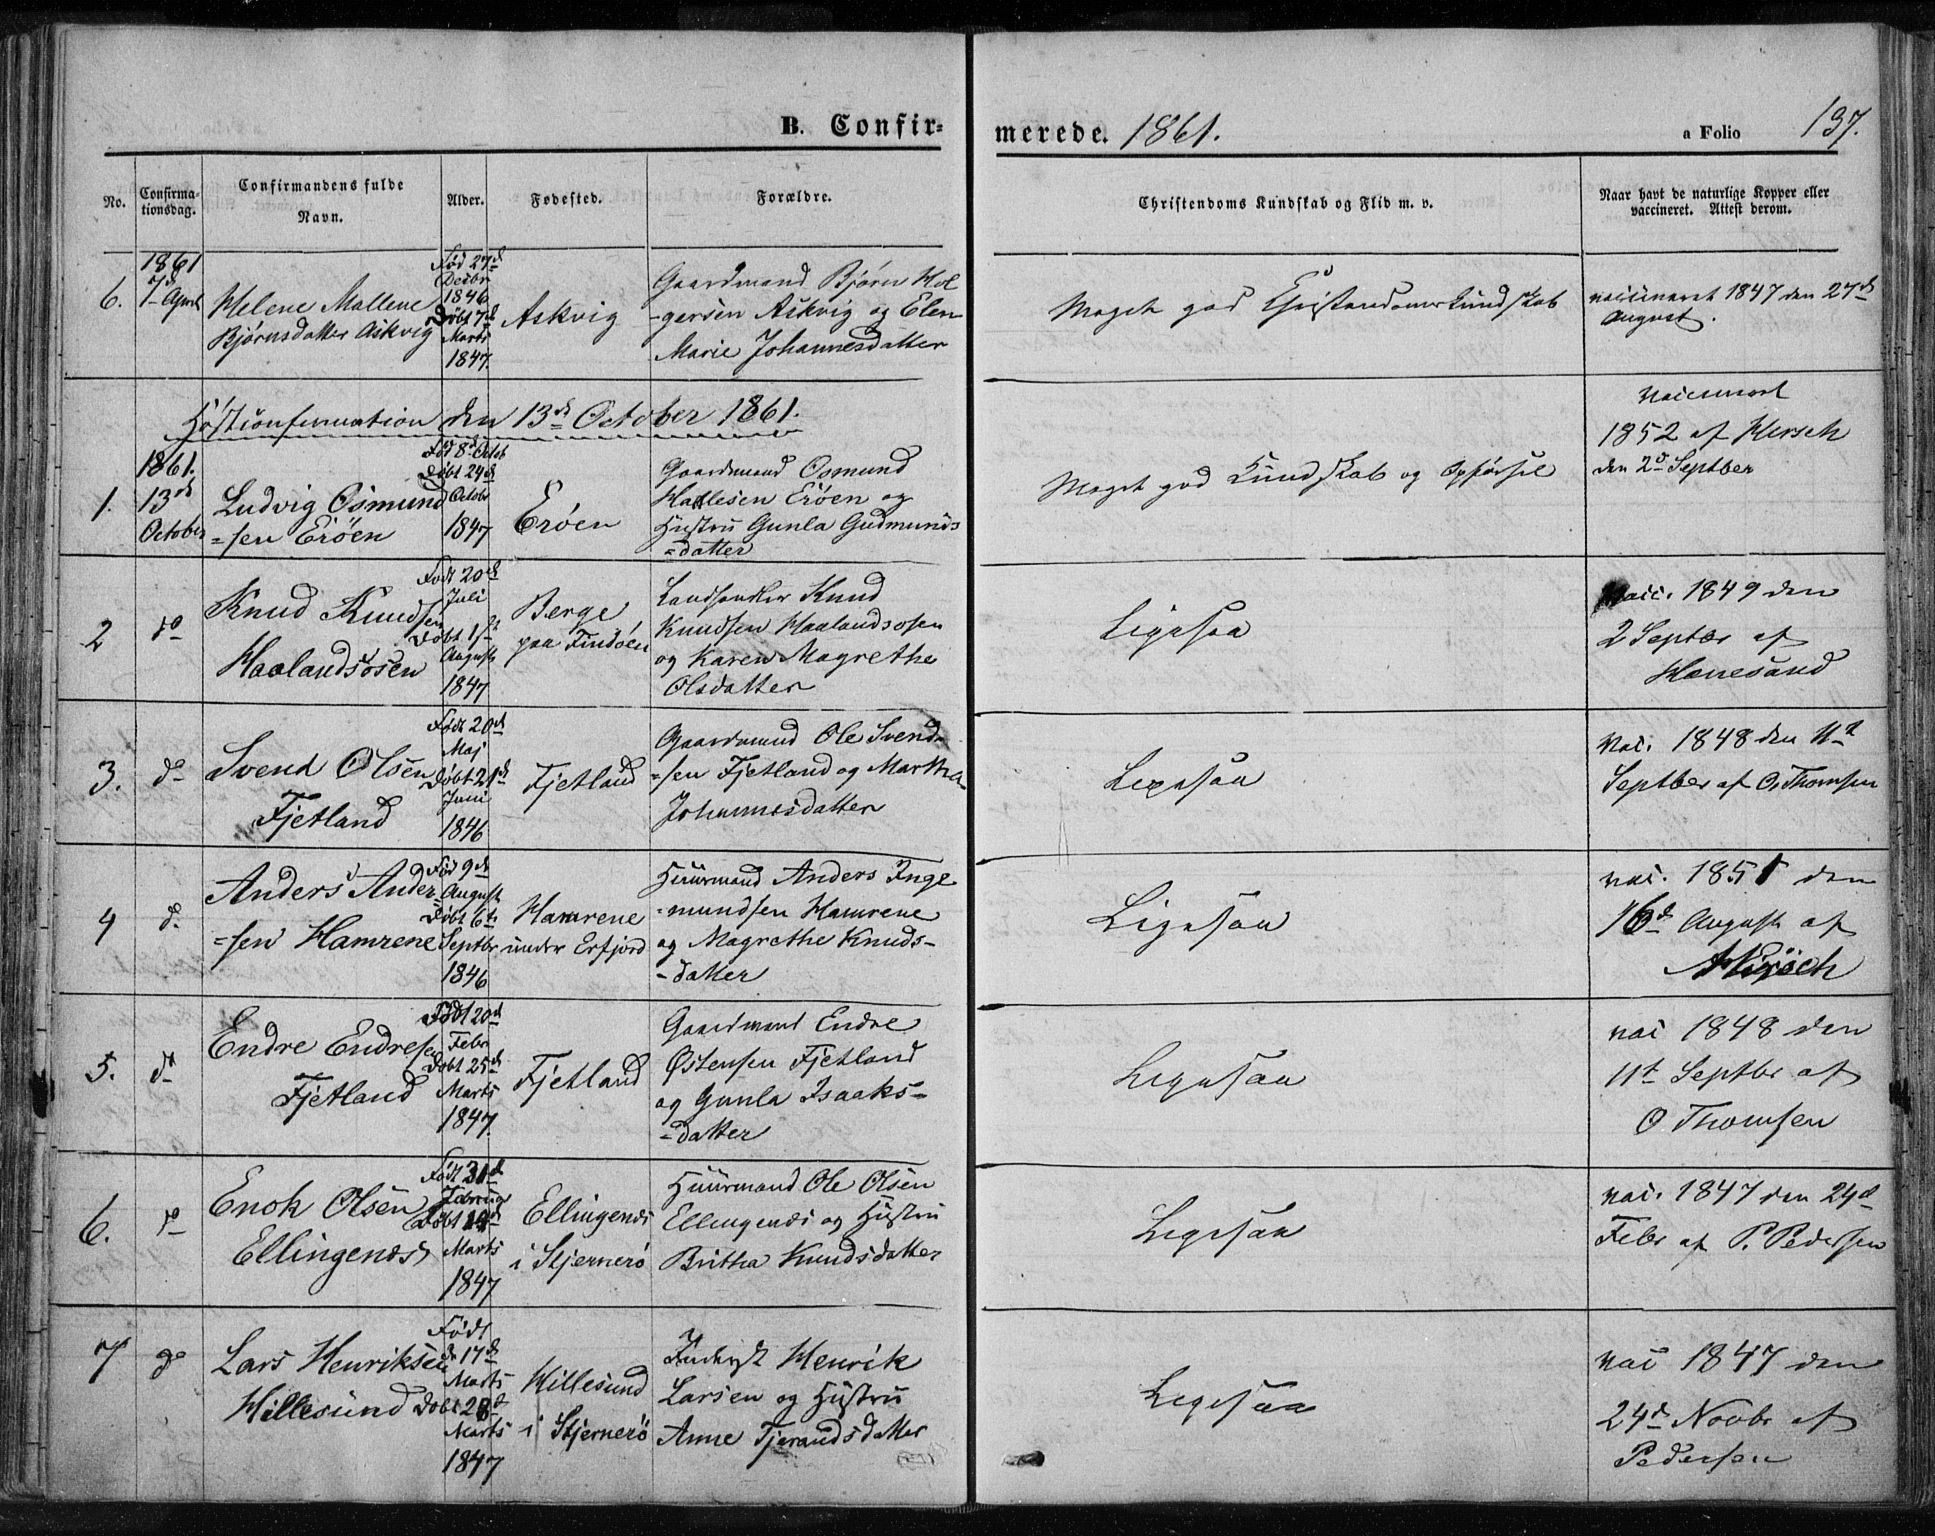 B. Confir-
merede. 1861.
a Folio 137.
No.
Confirma-
tionsdag.
Confirmandens fulde
Navn.
Alder.
Fødested.
Forældre.
Christendoms Kundskab og Flid m. v.
Naar havt de naturlige Kopper eller
vaccineret. Attest derom.
6.
1861
7d April
Helene Mallene
Bjørnsdatter Askvig
Fød 27d
Decbr
1846
Døbt 7d
Marts
1847.
Askvig
Gaardmand Bjørn Hol
-gersen Askvig og Elen
Marie Johannesdatter
Meget god Christendomskundskab
vaccineret 1847 den 27d
August.
Høstconfirmation den 13d October 1861.
1.
1861.
13d
October
Ludvig Osmund
=sen Erøen
Fød 8d Octob
Døbt 24d
Octobr
1847
Erøen
Gaardmand Osmund
Hallesen Erøen og
Hustru Gunla Gudmunds
=datter
Meget god Kundskab og Opførsel
1852 af Hersch
den 2d Septber
2
do
Knud Knudsen
Haalandsosen
Født 20d
Juli
Døbt 1st
August
1847
Berge
paa Findøen
Knud
Knudsen Haalandsosen
og Karen Magrethe
Olsdatter
Ligesaa
vacc. 1849 den
2 Septbr af
3.
do
Svend Olsen
Fjetland
Født 20d
Maj
Døbt 21d
Juni
1846
Fjetland
Gaardmand Ole Svend-
=sen Fjetland og Martha
Johannesdatter
Ligesaa
Vac. 1848 den 11t
Septber af O. Thomsen
4
do
Anders Ander
=sen Hamrene
Fød 9d
August
Døbt 6te
Septbr
1846
Hamrene
under Erfjord
Huusmand Anders Inge
=mundsen Hamrene
og Magrethe Knuds-
-datter
Ligesaa
vac. 1851 den
16d August af
5.
do
Endre Endresen
Fjetland
Født 20d
Febr
Døbt 25d
Marts
1847.
Fjetland
Gaardmand Endre
Østensen Fjetland
og Gunla Isaaks-
=datter
Ligesaa
vac 1848 den
11t Septbr af
O Thomsen
6.
do
Enok Olsen
Ellingenæs
Født
Døbt
Marts
1847
Ellingenæs
i Stjernerø
Huusmand Ole Olsen
Ellingenæs og Hustru
Britha Knudsdatter
Ligesaa
vac. 1847 den 24d
Febr af P. Pedersen
7
do
Lars Henriksen
Hillesund
Født
d. 17d
Marts
Døbt 28d
Marts
1847
Hillesund
i Stjernerø
Henrik
Larsen og Hustru
Anne Tjerandsdatter
Ligesaa
vac 1847 den
24d Novbr af
Pedersen